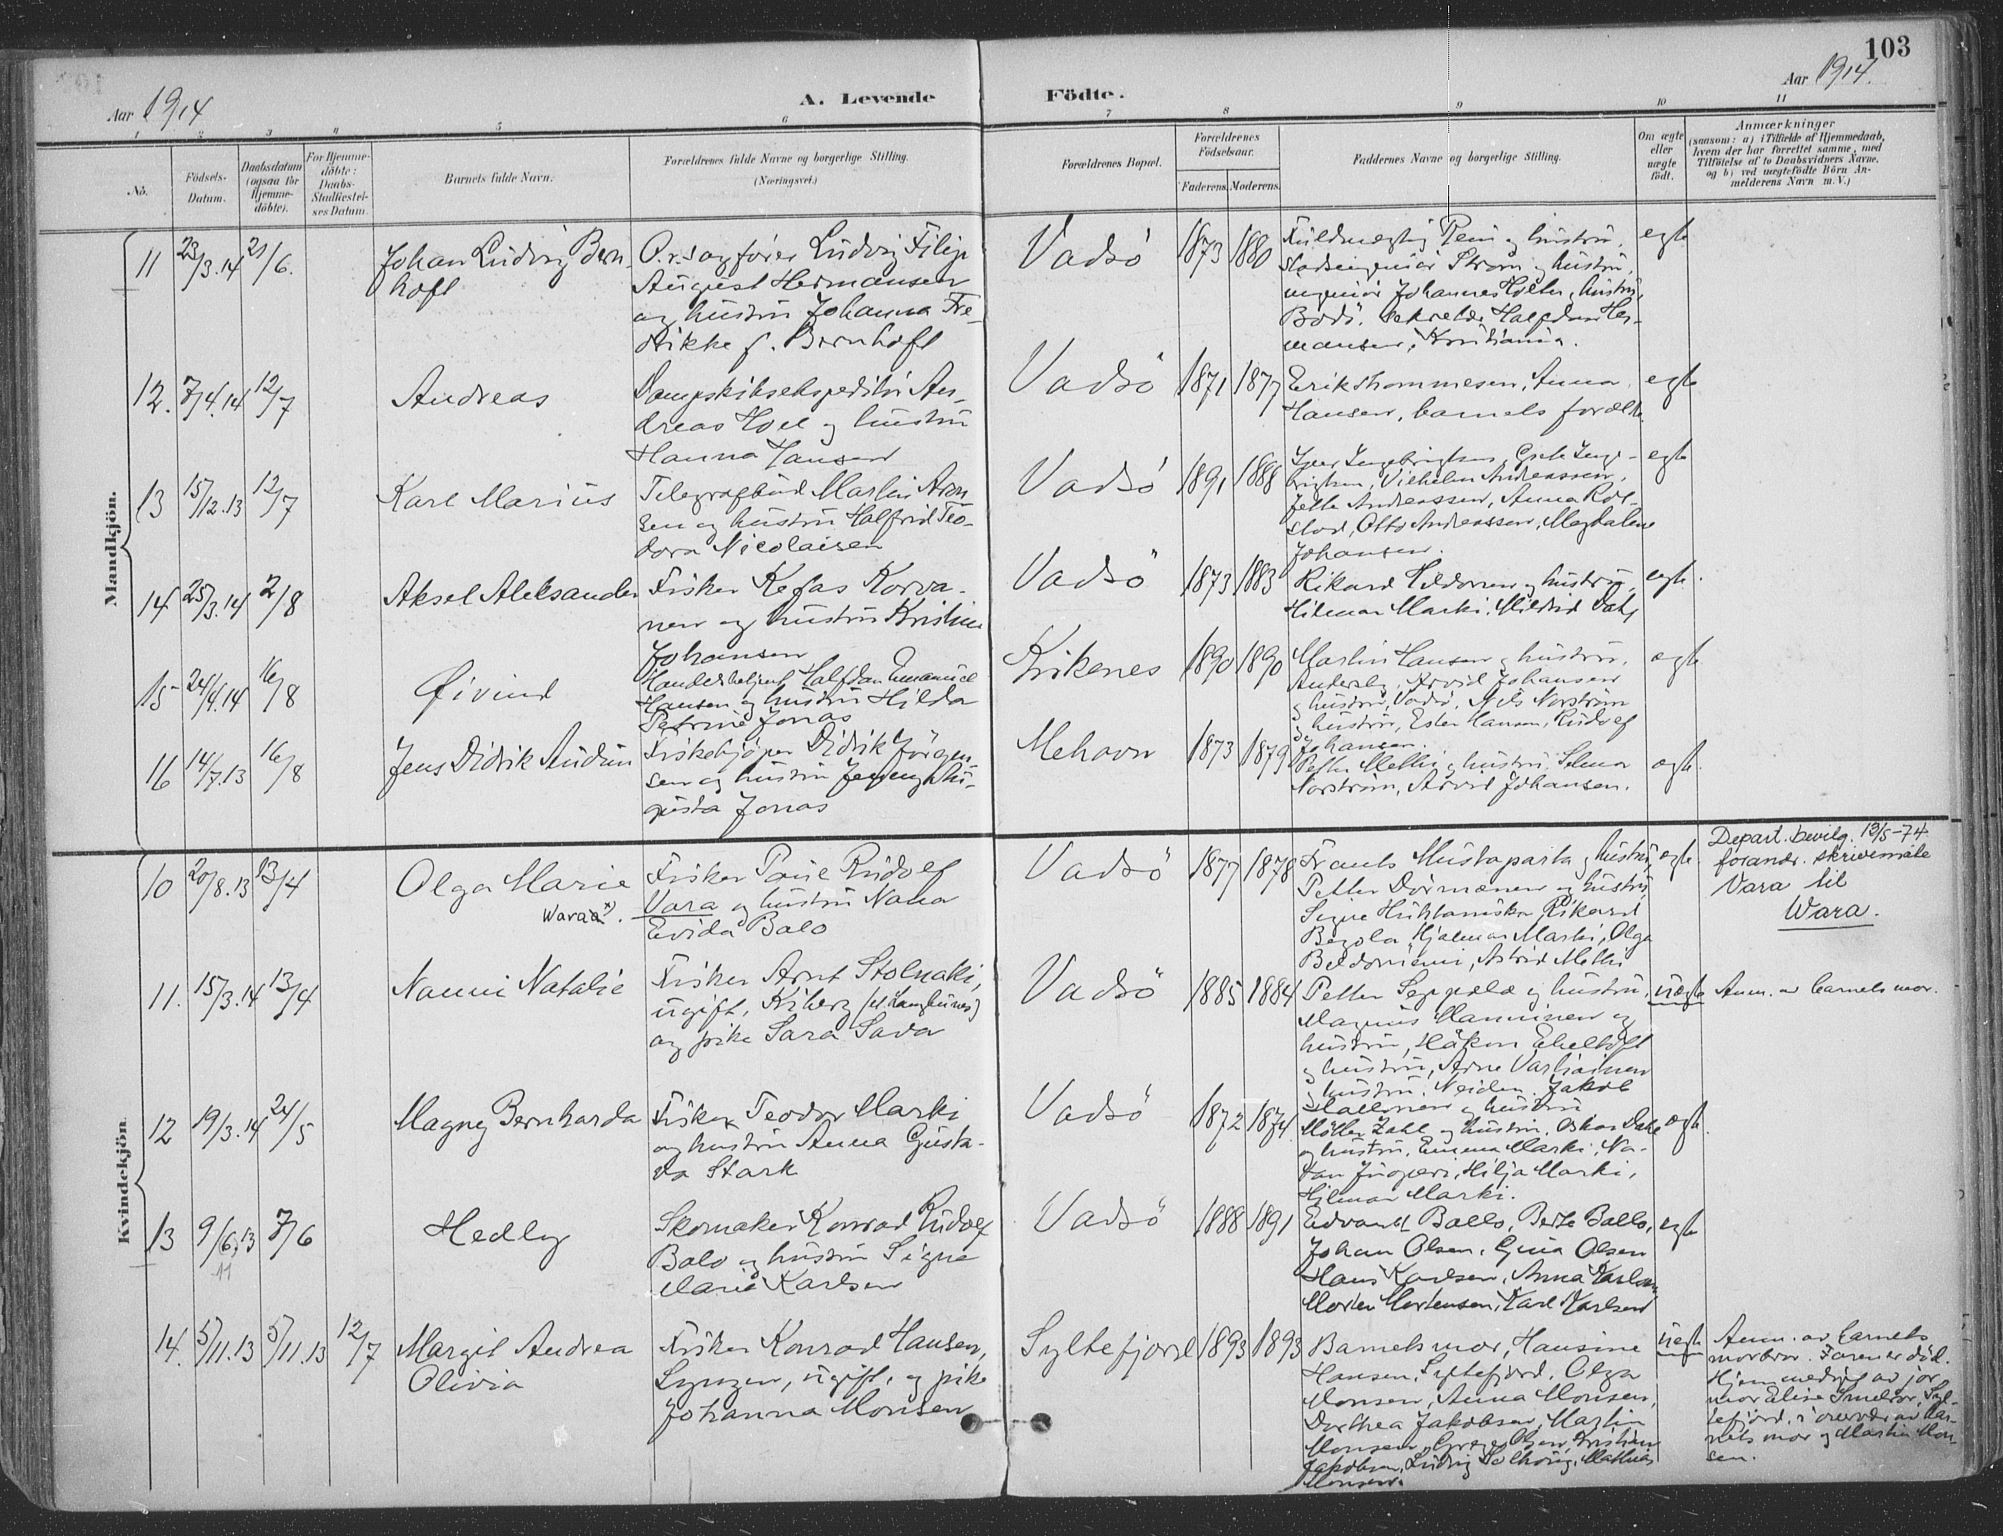 103
Aar 1914
A. Levende
Födte.
Aar 1914.
1 2 3 4 5 6 7 8 9 10 11
No.
Födsels-
Datum.
Daabsdatum
(ogsaa for
Hjemme-
döbte).
For Hjemme-
döbte:
Daabs-
Stadfæstel-
ses Datum.
Barnets fulde Navn.
Forældrenes fulde Navne og borgerlige Stilling.
(Næringsvei.)
Forældrenes Bopæl.
Forældrenes
Födselsaar.
Faderens. Moderens.
Faddernes Navne og borgerlige Stilling.
Om ægte
eller
uægte
födt.
Anmærkninger
(saasom: a) i Tilfælde af Hjemmedaab,
hvem der har forrettet samme, med
Tilföielse af to Daabsvidners Navne,
og b) ved uægtefödte Börn An-
melderens Navn m. V.)
Mandkjön.
11 23/3.14 21/6.
Johan Ludvig Bern-
hoft
O.r.sagfører Ludvig Filip
August Hermansen
og hustru Johanna Fre-
drikke f. Bernhoft
Vadsö 1873 1880
Fuldmægtig og hustru,
Stadsingeniör Ström og hustru,
ingeniör Johannes Holter, hustru,
Bodö. Sekretær Halfdan Her-
mansen, Kristiania.
egte
12. 7/4.14 12/7
Andreas
Dampskibsekspeditör An-
dreas Hoel og hustru
Hanna Hansen
Vadsö 1871 1877
Erik Thommesen, Anna
Hansen, barnets foræld.
egte
13 15/12.13 12/7
Karl Marius
Telegrafbud Martin Aron-
sen og hustru Halfrid Teo-
dora Nicolaisen
Vadsö 1891 1888
Iver Ingebrigtsen, Inge-
brigtsen, Vilhelm Andreassen,
Jette Andreassen, Anna Rol-
stad, Otto Andreassen, Magdalene
Johansen.
egte
14 25/3.14 2/8
Aksel Aleksander
Fisker Kefas Korva-
nen og hustru Kristine
Johansen
Vadsö 1873 1883
Rikard og hustru,
Hilmar Marki, Mildrid Dahl
egte.
15 24/4.14 16/8
Øivind
Handelsbetjent Halfdan Emanuel
Hansen og hustru Hilda
Petrine Jonas
Kirkenes 1890 1890
Martin Hansen og hustru,
Andersby, Arvid Johansen
og hustru, Vadsö, Nils Norström
og hustru, Ester Hansen, Rudolf
Johansen.
egte
16 14/7.13 16/8
Jens Didrik Audun
Fiskekjöper Didrik Jörgen-
sen og hustru Jenny Au-
gusta Jonas
Mehavn 1873 1879
Petter Methi og hustru, Selma
Norström, Arvid Johansen.
egte.
Kvindekjön.
10 20/8.13 13/4
Olga Marie
Waraa x).
Fisker Paul Rudolf
Vara og hustru Nanna
Evida Balo
Vadsö 1877 1878
Frants Mustaparta og hustru,
Petter Dörmænen og hustru,
Signe Rikard
Hjalmar Marki, Olga
Beldoniemi, Astrid Methi
egte.
Depart. bevilg. 13/5-74
forandr. skrivemåte
Vara til
Wara.
11. 15/3.14 13/4
Nanni Natalie
Fisker Arnt Stolmaki,
ugift, Kiberg (el. Langbunes)
og pike Sara Sava
Vadsö 1885 1884
Petter Seppælæ og hustru,
Magnus Manninen og
hustru, Håkon
og hustru, Arne Variainen
og hustru, Neiden, Jakob
og hustru
uægte
Anm. av barnets mor.
12 19/3.14 24/5
Magny Bernharda
Fisker Teodor Marki
og hustru Anna Gusta-
va Stark
Vadsö 1872 1874
Möller Zahl og hustru, Oskar Dahl
og hustru, Emma Marki, Na-
tan Hilja Marki,
Hilmar Marki.
egte.
13 9/6.13 7/6
11
Hedly
Skomaker Konrad Rudolf
Balo og hustru Signe
Marie Karlsen
Vadsö 1888 1891
Edvard Ballo, Berte Ballo,
Johan Olsen, Gina Olsen
Hans Karlsen, Anna Karlsen
Morten Mortensen, Karl Karlsen
egte
14. 5/11.13 5/11.13 12/7
Margit Andrea
Olivia
Fisker Konrad Hansen,
Lyngen, ugift, og pike
Johanna Monsen
Syltefjord 1893 1893
Barnets mor, Hansine
Hansen, Syltefjord, Olga
Monsen, Anna Monsen,
Dorthea Jakobsen, Martin
Monsen, Olsen, Kristian
Jakobsen, Ludvig Mathias
Monsen.
uægte
Anm. av barnets
morbror. Faren er död.
Hjemmedöpt av jor-
mor Elise Smelror, Syl-
tefjord, i overvær av bar-
nets mor og Martin Mon-
sen.